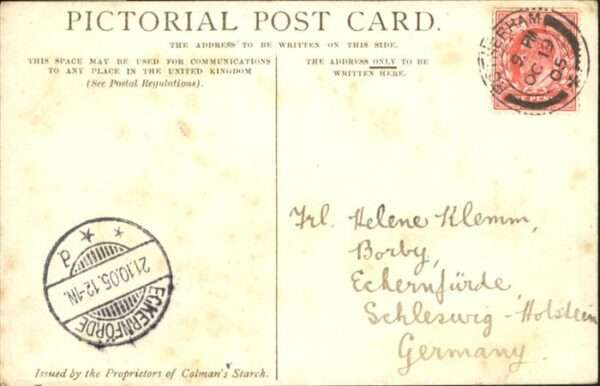 PICTORIAL POST CARD.
THE ADDRESS TO BE WRITTEN ON THIS SIDE.
THIS SPACE MAY BE USED FOR COMMUNICATIONS
TO ANY PLACE IN THE UNITED KINGDOM
(See Postal Regulations).
THE ADDRESS ONLY TO BE
WRITTEN HERE.
9 PM
OC 19
05
Frl. Helene Klemm,
Borby,
Eckernfürde,
Schleswig-Holstein
Germany.
21.10.05.12-1N.
ECKERNFÖRDE
Issued by the Proprietors of Colman's Starch.